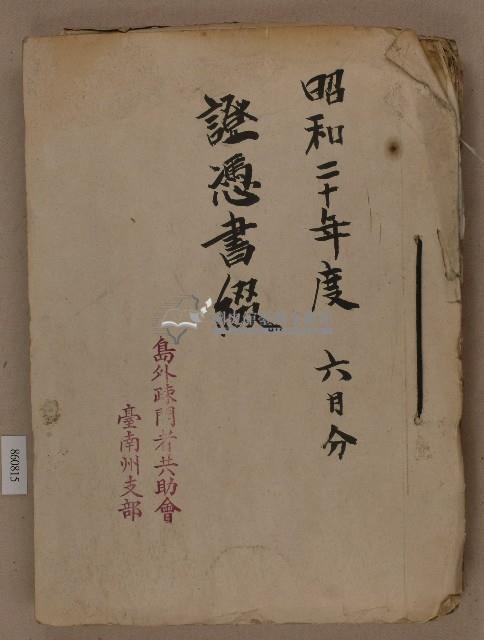 昭和二十年度 六月分
證憑書綴
島外疎開者共助會
臺南州支部
860815